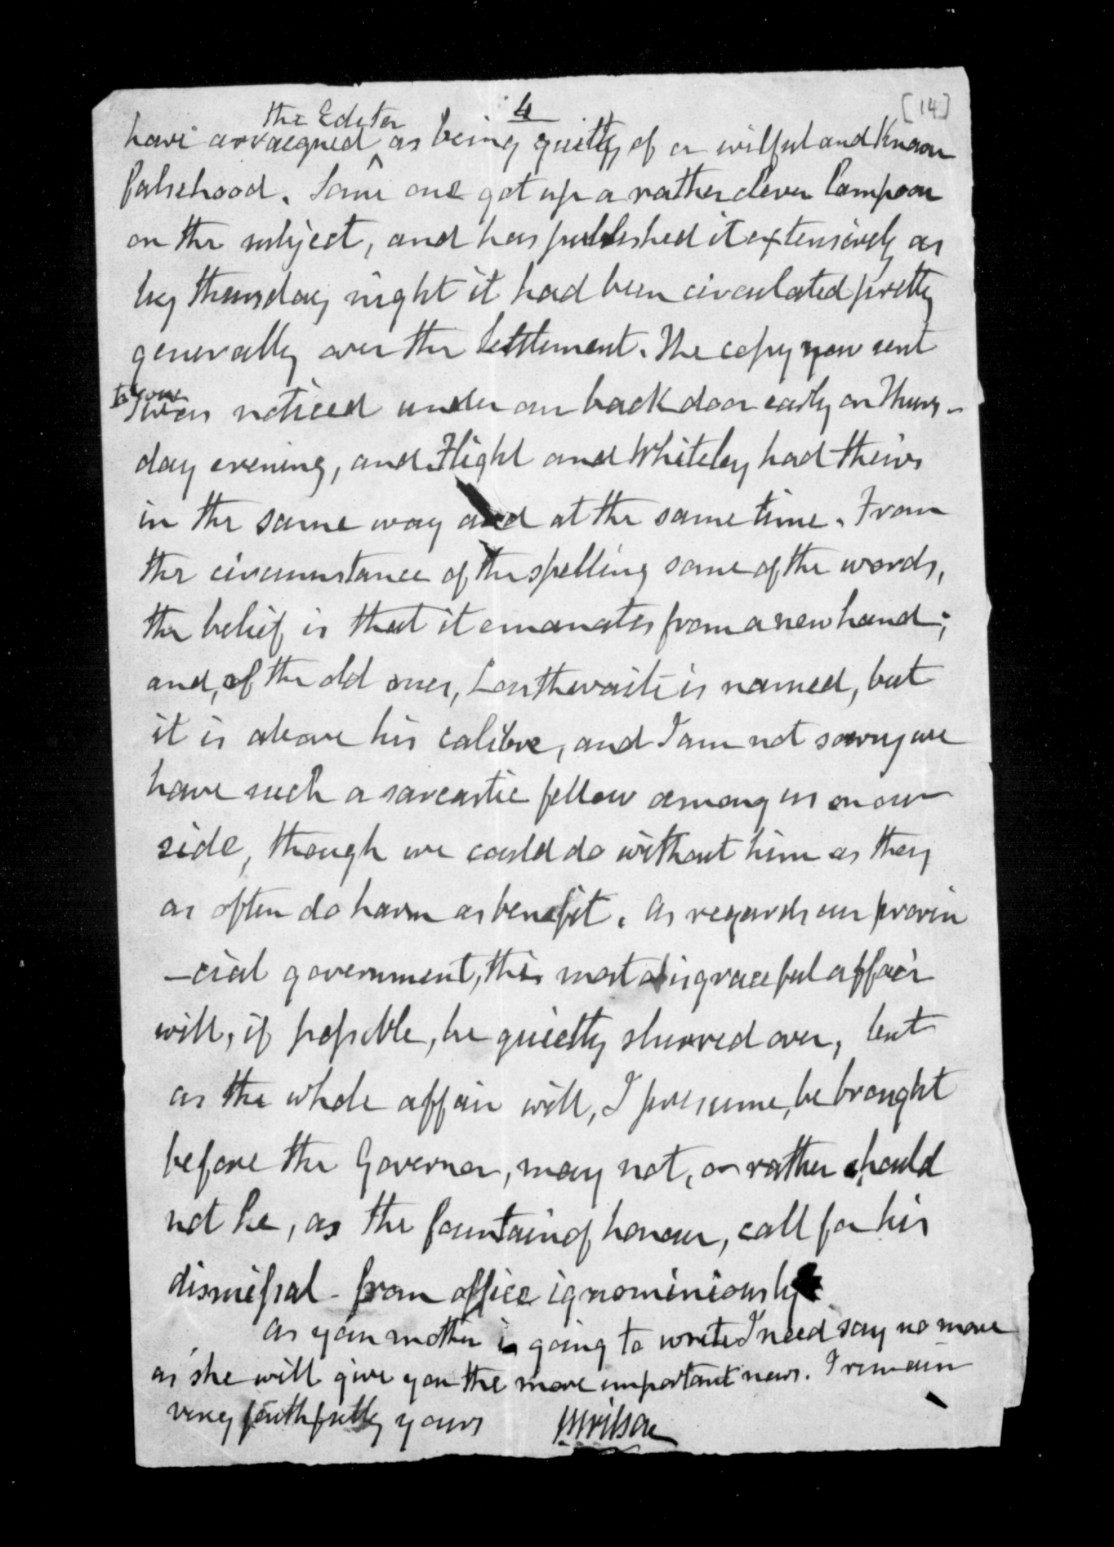 4
[14]
the Editor
have arraigned as being guilty of a wilful and known
falsehood. Some one got up a rather clever lampoon
on the subject, and has published it extensively as
by thursday night it had been circulated pretty
generally over the Settlement. The copy now sent
to you
was noticed under our back door early on Thurs-
day evening, and Flight and Whiteley had theirs
in the same way and at the same time. From
the circumstance of the spelling some of the words,
the belief is that it emanates from a new hand;
and, of the old ones, Louthwaite is named, but
it is above his calibre, and I am not sorry we
have such a sarcastic fellow among us on our
side, though we could do without him as they
as often do harm as benefit. As regards our provin
-cial government, this most disgraceful affair
will, if possible, be quietly slurred over, but
as the whole affair will, I presume, be brought
before the Governor, may not, or rather should
not he, as the fountain of honour, call for his
dismissal - from office ignominiously
As your mother is going to write I need say no more
as she will give you the more important news. I remain
very faithfully yours